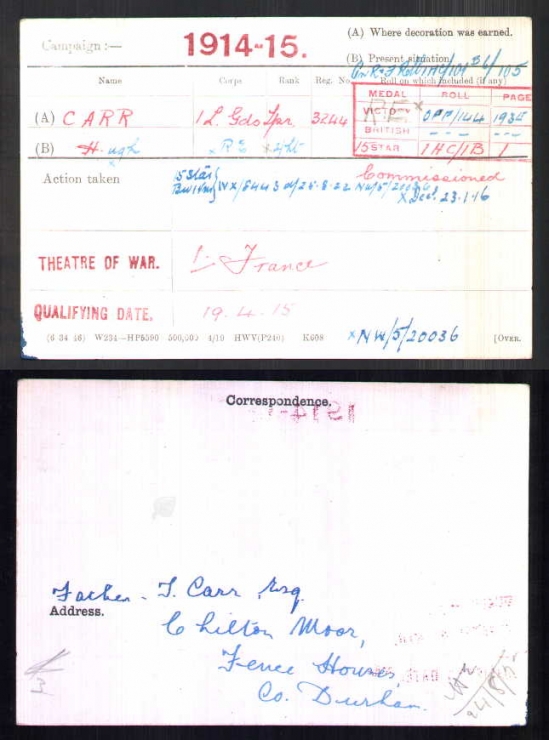 Campaign :— 1914-15. (A) Where decoration was earned.
(B) Present situation.
Name Corps Rank Reg. No. Roll on which included (if any)
MEDAL ROLL PAGE
(A) CARR 1 L. Gds Tpr 3244 VICTORY OFF/144 193
BRITISH - - -
(B) Hugh x R E x 2/Lt 15 STAR 1 HC/1B 1
Action taken 15 Star Commissioned
WX/5443 NW/5/20036 x Decd. 23.1.16
THEATRE OF WAR. 1. France
QUALIFYING DATE. 19.4.15
(6 34 46) W234—HP5590 500,000 4/19 HWV(P240) K608 x NW/5/20036 [OVER.
Correspondence.
Father - T. Carr, Esq.
Address.
Chilton Moor,
Fence Houses,
Co. Durham.
24/8/